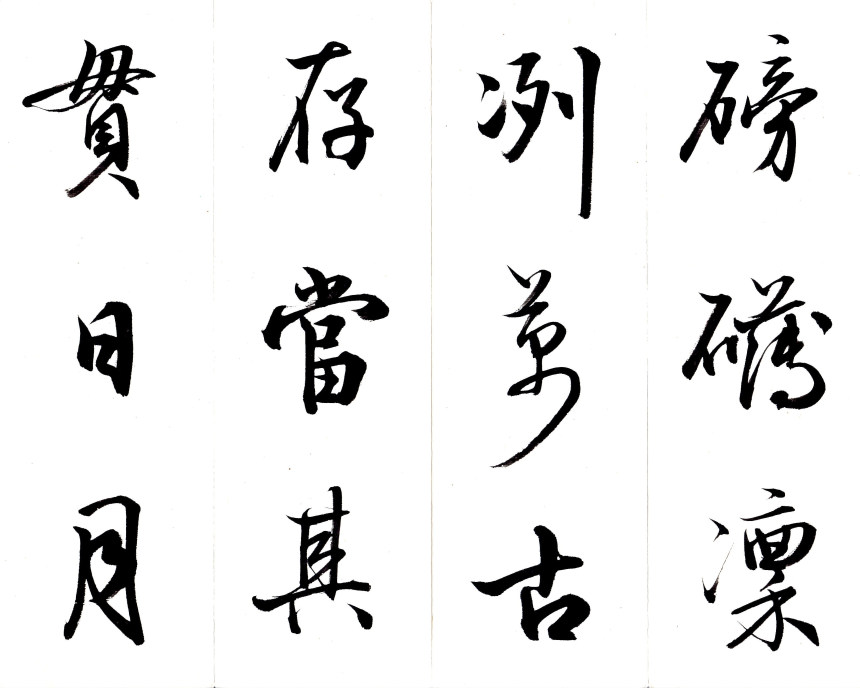 磅礴凜
冽萬古
存當其
貫日月